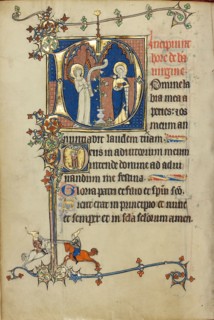 Incipiunt
hore de
uirgine
Domine la
bia mea a
peries: et os
meum an
nunciabit laudem tuam
Deus in adiutorium meum
intende domine ad adiu
uandum me festina
Gloria patri et filio et spui sco
Sicut erat in principio et nunc
et semper et in scla sclorum amen.